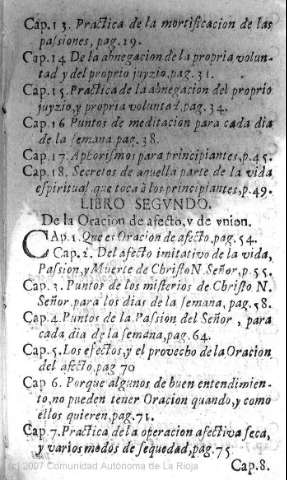 Cap.13. Practica de la mortificacion de las
passiones, pag.29.
Cap.14 De la abnegacion de la propria volun-
tad y del proprio juyzio, pag. 31.
Cap.15. Practica de la abnegacion del proprio
juyzio, y propria voluntad, pag. 34.
Cap.16 Puntos de meditacion para cada dia
de la semana pag. 38.
Cap.17. Aphorismos para principiantes, p.45.
Cap.18. Secretos de aquella parte de la vida
espiritual, que toca à los principiantes, p.49.
LIBRO SEGVNDO.
De la Oracion de afecto, y de vnion.
CAp.1. Que es Oracion de afecto, pag. 54.
Cap.2. Del afecto imitativo de la vida,
Passion, y Muerte de Christo N. Señor, p.55.
Cap.3. Puntos de los misterios de Christo N.
Señor para los dias de la semana, pag.58.
Cap.4. Puntos de la Passion del Señor, para
cada dia de la semana, pag.64.
Cap.5. Los efectos, y el provecho de la Oracion
del afecto, pag 70
Cap 6. Porque algunos de buen entendimien-
to, no pueden tener Oracion quando, y como
ellos quieren, pag.71.
Cap.7. Practica de la operacion afectiva seca,
y varios modos de sequedad, pag.75
Cap.8.
(c) 2007 Comunidad Autónoma de La Rioja